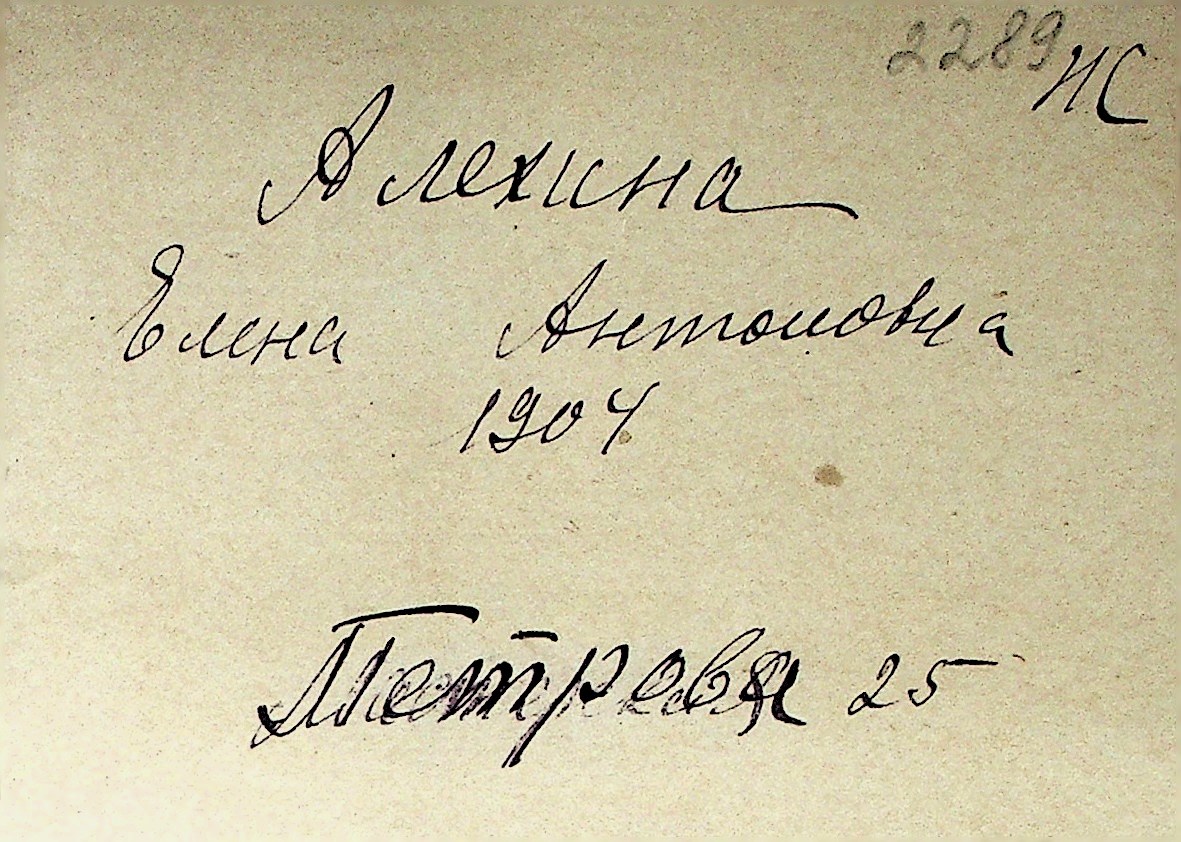 2289 Ж
Алехина
Елена Антоновна
1904
Петрова 25